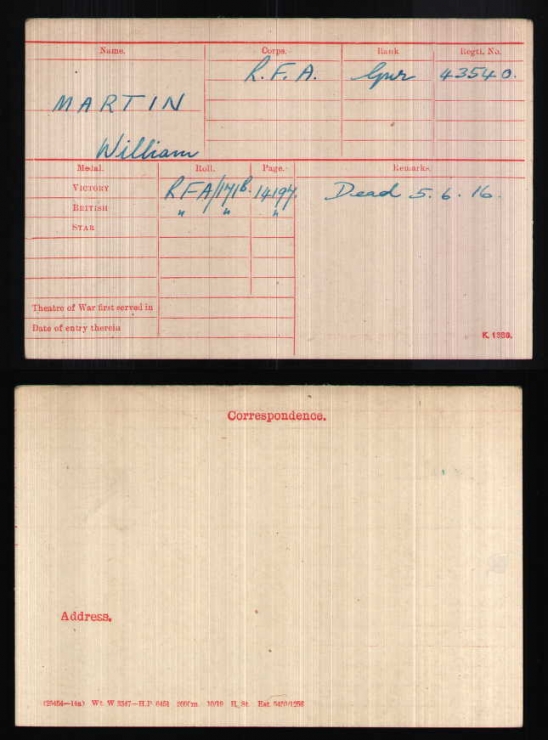 Name. Corps. Rank Regtl. No.
MARTIN R.F.A. Gnr 43540.
William
Medal. Roll. Page. Remarks.
VICTORY RFA/171B. 14197. Dead 5.6.16.
BRITISH " " "
STAR
Theatre of War first served in
Date of entry therein
K. 1380.
Correspondence.
Address.
Wt. W 5347—H.P. 10/19 E. St.